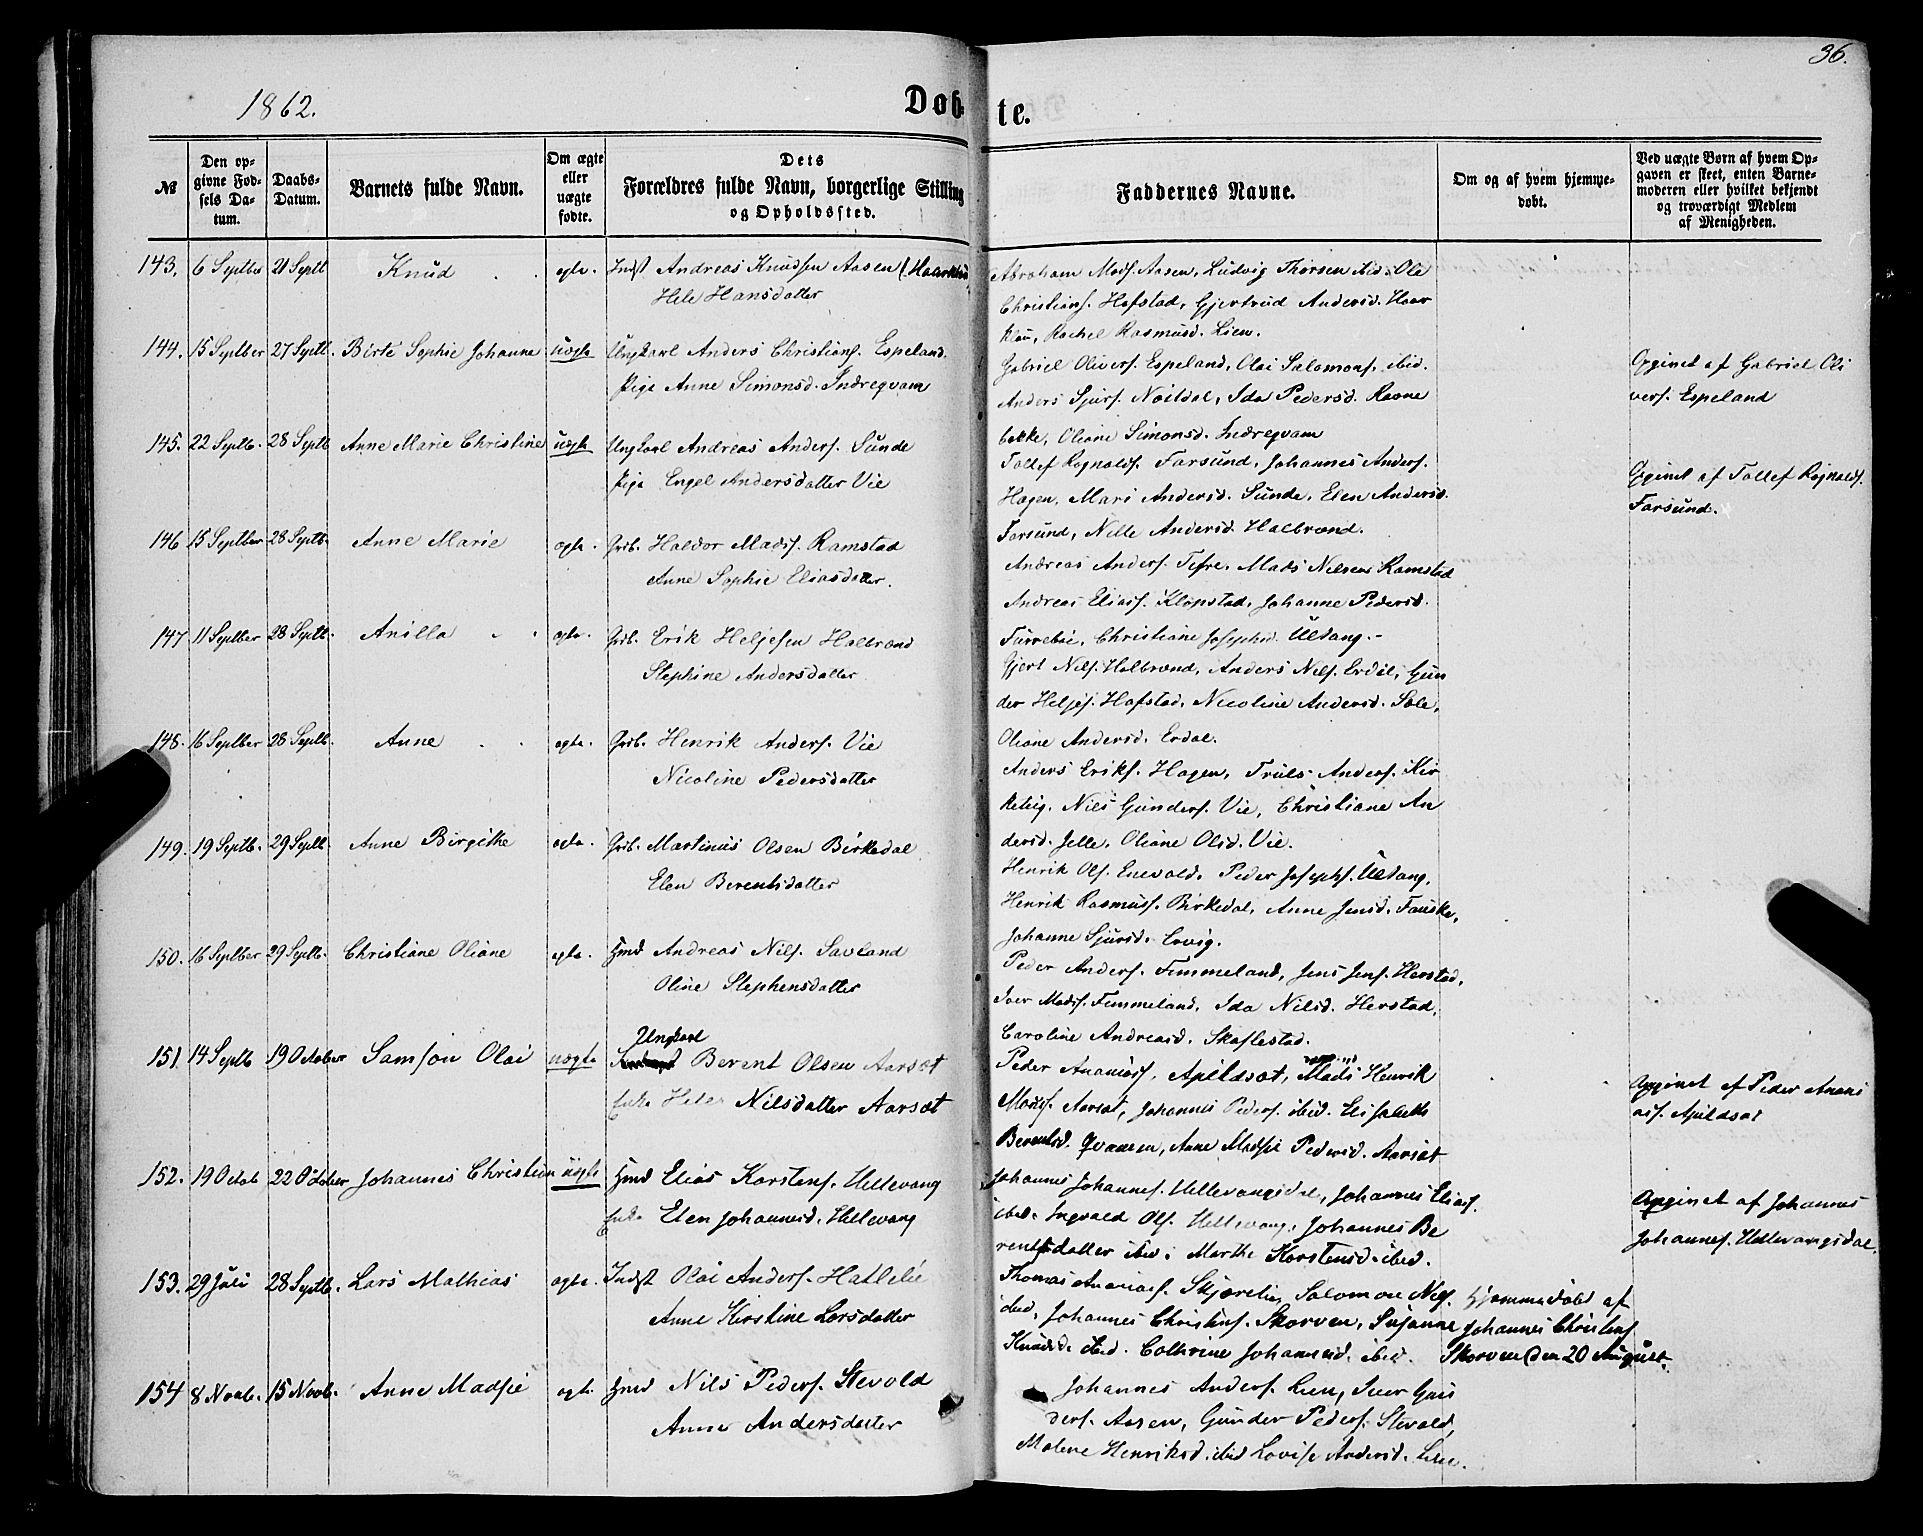 36.
1862.
Døbte.
№
Den opgivne Fødsels Datum.
Daabs-Datum.
Barnets fulde Navn.
Om ægte eller uægte fødte.
Dets Forældres fulde Navn, borgerlige Stilling og Opholdssted.
Faddernes Navne.
Om og af hvem hjemmedøbt.
Ved uægte Børn af hvem Opgaven er skeet, enten Barnemoderen eller hvilket bekjendt og troværdigt Medlem af Menigheden.
143. 6 Septber 21 Septb Knud ægte. Indst Andreas Knudsen Aasen
Hele Hansdatter
Abraham Mads. Aasen, Ludvig Thorsen ibid. Ole
Christians. Hafstad, Gjertrud Andersd. Haar
klau, Rachel Rasmusd. Lien.
144. 15 Septber 27 Septb. Birte Sophie Johanne uægte Ungkarl Anders Christians. Espeland.
Pige Anne Simonsd. Indreqvam
Gabriel Olivers. Espeland, Olai Salomons. ibid.
Anders Sjurs. Nøildal, Ida Pedersd. Ravne
bække, Oliane Simonsd. Indreqvam
Opgivet af Gabriel Oli
vers. Espeland
145. 22 Septb. 28 Septb Anne Marie Christine uægte Ungkarl Andreas Anders. Sunde
Pige Engel Andersdatter Vie
Tollef Rognalds. Farsund, Johannes Anders.
Hagen, Mari Andersd. Sunde, Elen Andersd.
Farsund, Nille Andersd. Halbrænd.
Opgivet af Tollef Rognalds.
Farsund.
146 15 Septber 28 Septb. Anne Marie ægte. Grdb. Haldor Mads. Ramstad
Anne Sophie Eliasdatter.
Andreas Anders. Tefre, Mads Nilsen Ramstad
Andreas Elias. Klopstad, Johanne Pedersd.
Furrebøe, Christiane Josephsd. Ultang.-
147 11 Septber 28 Septb. Anilla ægte. Grdb. Erik Heljesen Halbrænd
Stephine Andersdatter
Gjert Nils. Halbrænd, Anders Nils. Erdal, Gun
der Heljes. Hafstad, Nicoline Andersd. Sole,
Oliane Andersd. Erdal.
148. 16 Septber 28 Septb. Anne ægte. Grdb. Henrik Anders. Vie
Nicoline Pedersdatter
Anders Eriks. Hagen, Truls Anders. Kir
keteig, Nils Gunders. Vie, Christiane An
dersd. Jelle, Oliane Olsd. Vie.
149. 19 Septb. 29 Septb. Anne Birgithe ægte Grdb. Martinus Olsen Birkedal
Elen Berentsdatter
Henrik Ols. Enevold, Peder Josephs. Ultang,
Henrik Rasmus. Birkedal, Anne Jensd. Fauske,
Johanne Sjursd. Ervig.
150. 16 Septber 29 Septb. Christiane Oliane ægte. Hmd Andreas Nils. Savland
Oline Stephensdatter
Peder Anders. Fimmeland, Jens Jens. Herstad,
Iver Mads. Fimmeland, Ida Nilsd. Herstad,
Caroline Andreasd. Skaflestad.
151. 14 Septb 19 October Samson Olai uægte Ungkarl Berent Olsen Aarsæt
Enke Hele Nilsdatter Aarsæt
Peder Ananias. Apildsæt, Mads Henrik
Mads. Aarsæt, Johannes Peders. ibid. Elisabeth
Berentsd. Qvamen, Anne Madsie Pedersd. Aarsæt
Opgivet af Peder Anani
as. Apildsæt
152. 19 Octob 22 October Johannes Christian uægte Hmd Elias Karstens. Hellevang
Enke Elen Johannesd. Hellevang
Johannes Johannes. Hellevangsdal, Johannes Elias.
ibid. Ingvald Ols. Hellevang, Johannes Be
rentsdatter ibid. Marthe Karstensd. ibid.
Opgivet af Johannes
Johannes. Hellevangsdal.
153. 29 Juli 28 Septb. Lars Mathias ægte. Indst Olai Anders. Hatlelie
Anne Kirstine Larsdatter
Thomas Ananias. Skjærelie, Salomon Nils.
ibid, Johannes Christens. Skorven, Susanne
Knudsd. ibid. Cathrine Johannesd. ibid.
Hjemmedøbt af
Johannes Christens.
Skorven den 20 August.
154 8 Novb. 15 Novb. Anne Madsie ægte Hmd Nils Peders. Stevold
Anne Andersdatter
Johannes Anders. Lien, Iver Gun
ders. Aasen, Gunder Peders. Stevold,
Malene Henriksd. ibid Lovise Andersd. Lien.